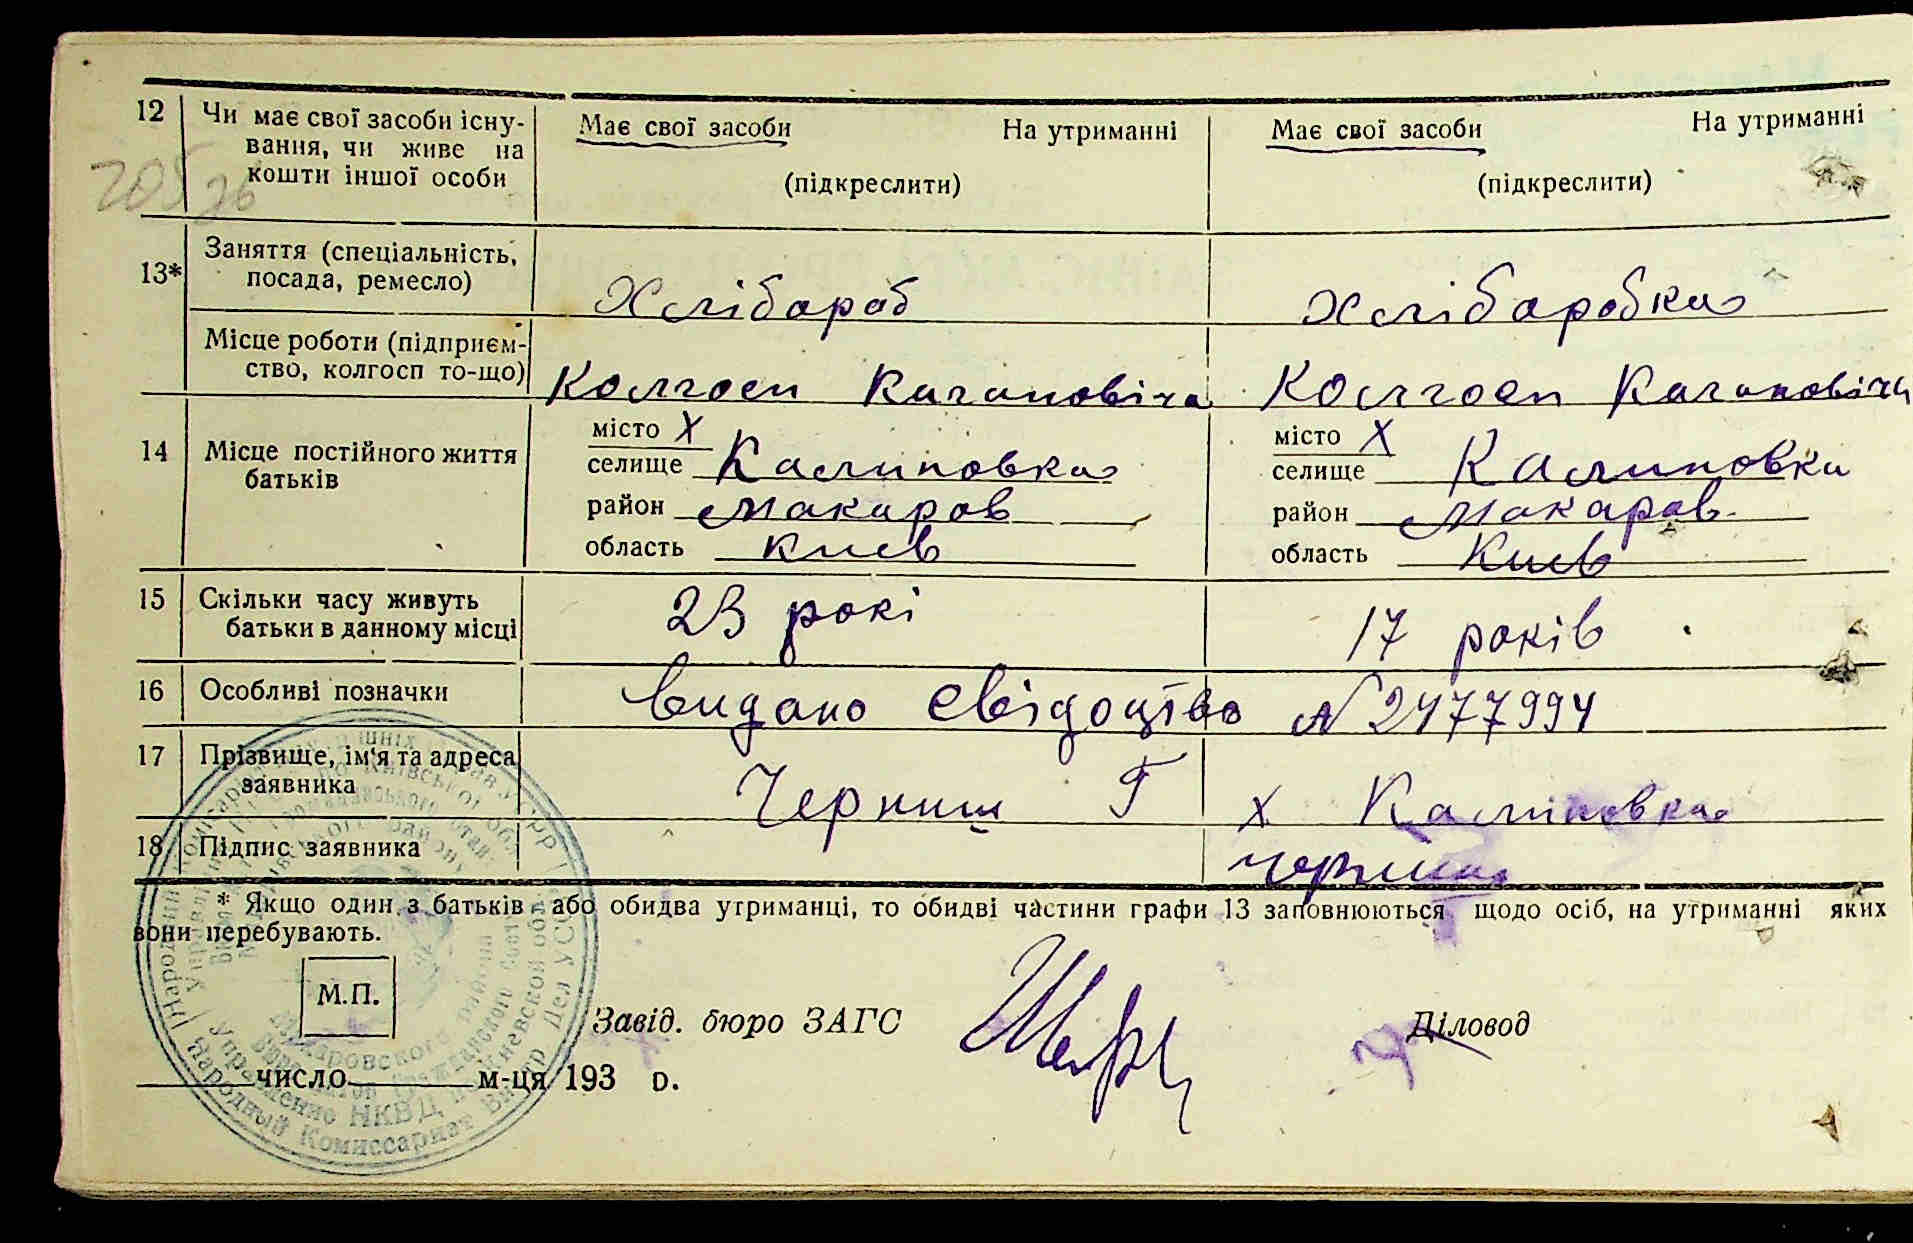 12 Чи має свої засоби існу-
вання, чи живе на
кошти іншої особи
Має свої засоби На утриманні
(підкреслити)
Має свої засоби На утриманні
(підкреслити)
13* Заняття (спеціальність,
посада, ремесло)
Хлібароб
Хлібаробка
Місце роботи (підприєм-
ство, колгосп то-що)
Колгосп Кагановіча
Колгосп Кагановіча
14 Місце постійного життя
батьків
місто X
селище Калиновка
район Макаров
область Киев
місто X
селище Калиновка
район Макаров
область Киев
15 Скільки часу живуть
батьки в данному місці
23 рокі
17 років
16 Особливі позначки
Видано свідоцтво N 2477994
17 Прізвище, ім'я та адреса
заявника
Черниш Г х Калиновка
18 Підпис заявника
* Якщо один з батьків або обидва утриманці, то обидві частини графи 13 заповнюються щодо осіб, на утриманні яких
вони перебувають.
М.П.
Завід. бюро ЗАГС
Діловод
число м-ця 193 р.
Народный Комиссариат Вн
Управление НКВД по Киевской обл
Макаровского района